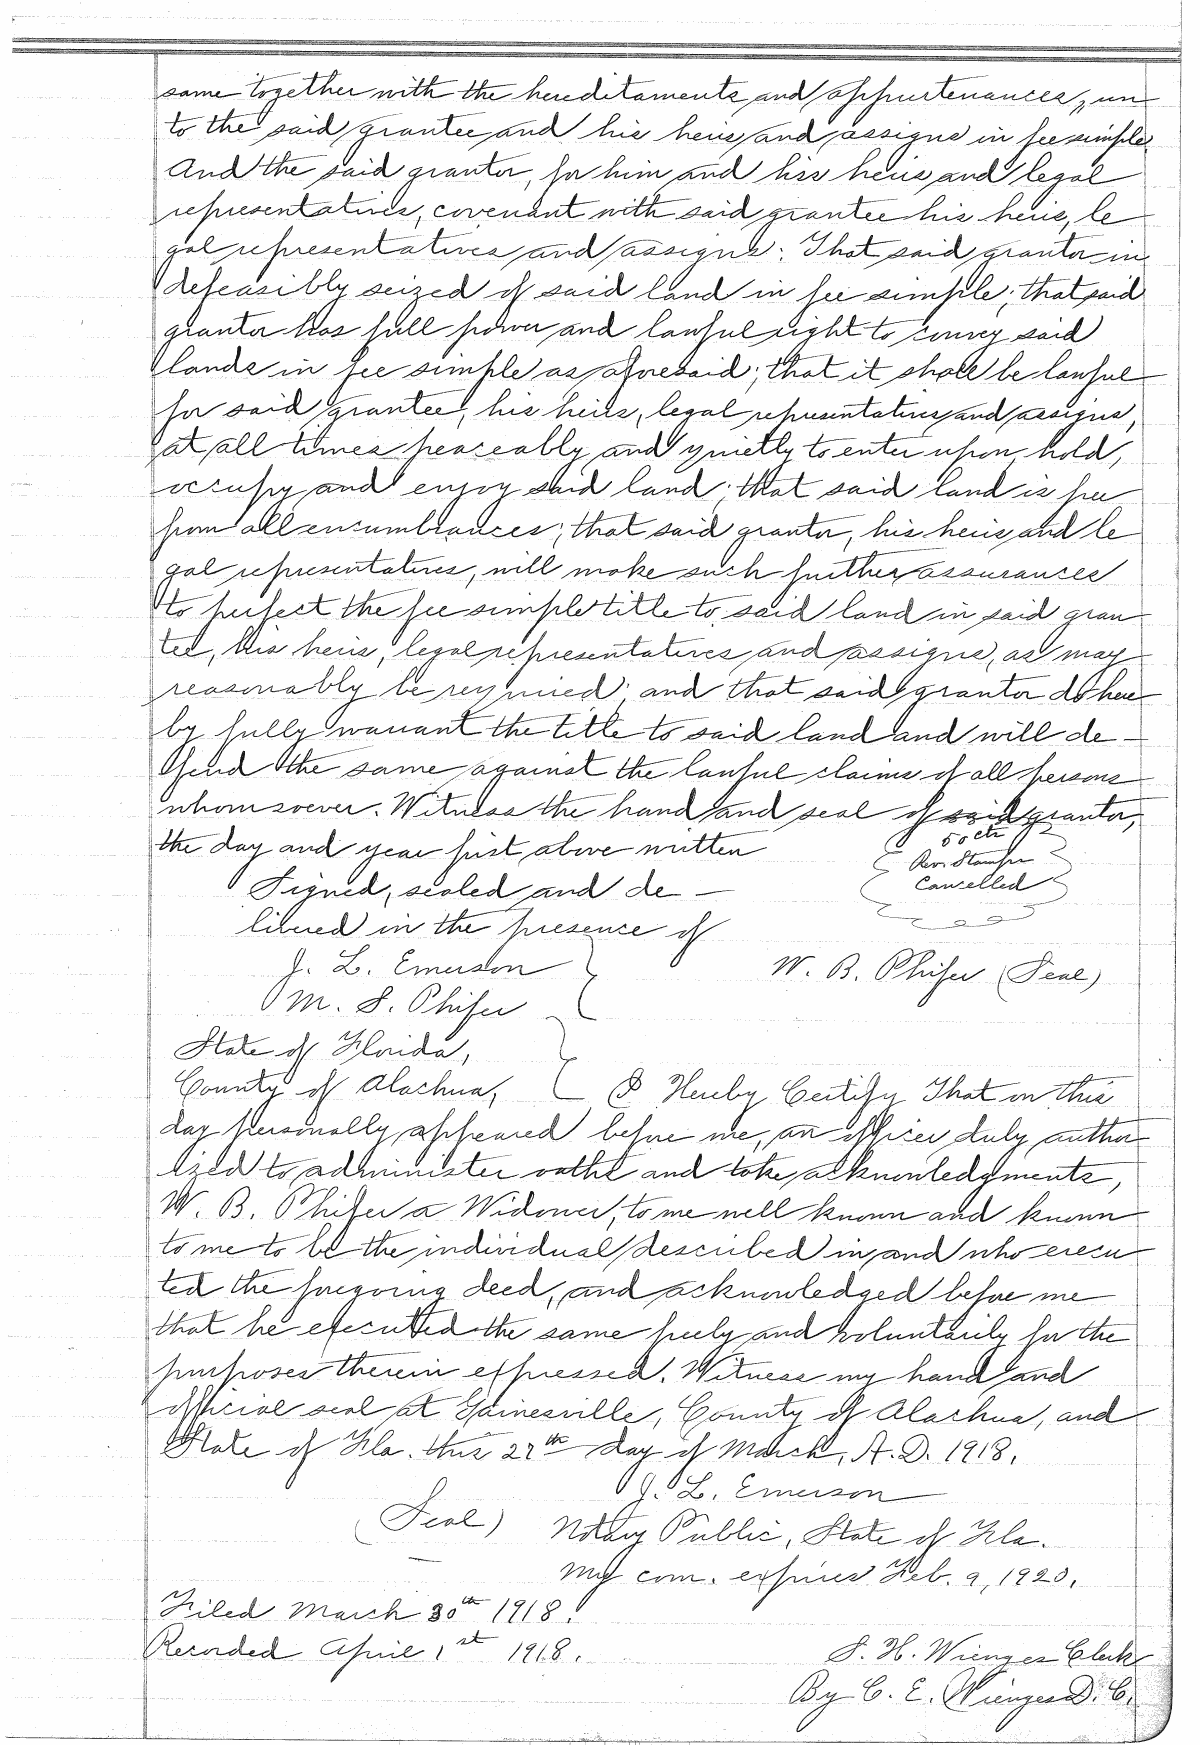 same together with the hereditaments and appurtenances, un
to the said grantee and his heirs and assigns in fee simple.
And the said grantor, for him and his heirs and legal
representatives, covenant with said grantee his heirs, le
gal representatives and assigns: That said grantor in
defeasibly seized of said land in fee simple; that said
grantor has full power and lawful right to convey said
lands in fee simple as aforesaid; that it shall be lawful
for said grantee, his heirs, legal representatives and assigns,
at all times peaceably and quietly to enter upon, hold,
occupy and enjoy said land; that said land is free
from all encumbrances; that said grantor, his heirs and le
gal representatives, will make such further assurances
to perfect the fee simple title to said land in said gran
tee, his heirs, legal representatives and assigns, as may
reasonably be required; and that said grantor do here
by fully warrant the title to said land and will de-
fend the same against the lawful claims of all persons
whomsoever. Witness the hand and seal of said grantor,
the day and year first above written
50 cts
Rev. Stamps
Cancelled
Signed, sealed and de-
livered in the presence of
J. L. Emerson
W. B. Phifer (Seal)
M. S. Phifer
State of Florida,
County of Alachua, I Hereby Certify That on this
day personally appeared before me, an officer duly author
ized to administer oaths and take acknowledgments,
W. B. Phifer a Widower, to me well known and known
to me to be the individual described in and who execu
ted the foregoing deed, and acknowledged before me
that he executed the same freely and voluntarily for the
purposes therein expressed. Witness my hand and
official seal at Gainesville, County of Alachua, and
State of Fla. this 27th day of March, A.D. 1918.
J. L. Emerson
(Seal) Notary Public, State of Fla.
My com. expires Feb. 9, 1920.
Filed March 30th 1918.
Recorded April 1st 1918.
S. H. Wienges Clerk
By C. E. Wienges D. C.